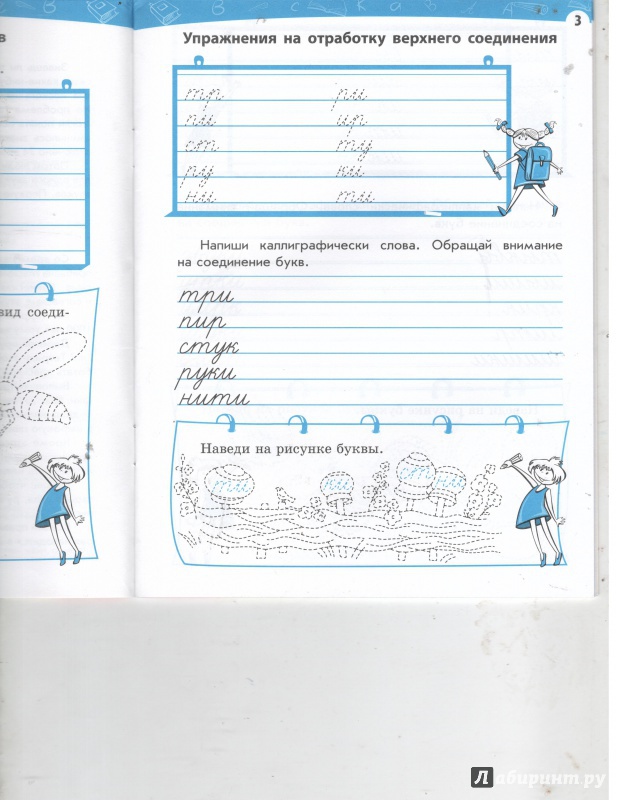 3
Упражнения на отработку верхнего соединения
тр ри
пи ир
ст ту
ру ки
ни ти
Напиши каллиграфически слова. Обращай внимание
на соединение букв.
три
пир
стук
руки
нити
вид соеди-
Наведи на рисунке буквы.
ки
ни
Лабиринт.ру